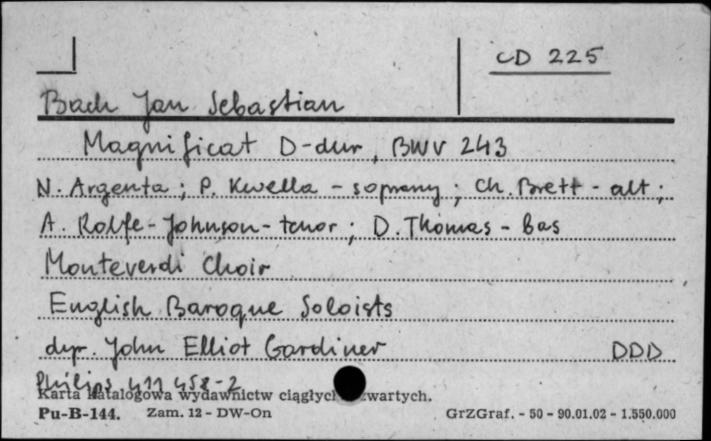 CD 225
Bach Jan Sebastian
Magnificat D-dur, BWV 243
N. Argenta; P. Kwella - soprany; Ch. Brett - alt;
A. Rolfe-Johnson - tenor; D. Thomas - bas
Monteverdi Choir
English Baroque Soloists
dyr. John Elliot Gardiner DDD
Philips 411 458-2
Karta katalogowa wydawnictw ciągłych wartych.
Pu-B-144. Zam. 12 - DW-On GrZGraf. - 50 - 90.01.02 - 1.550.000